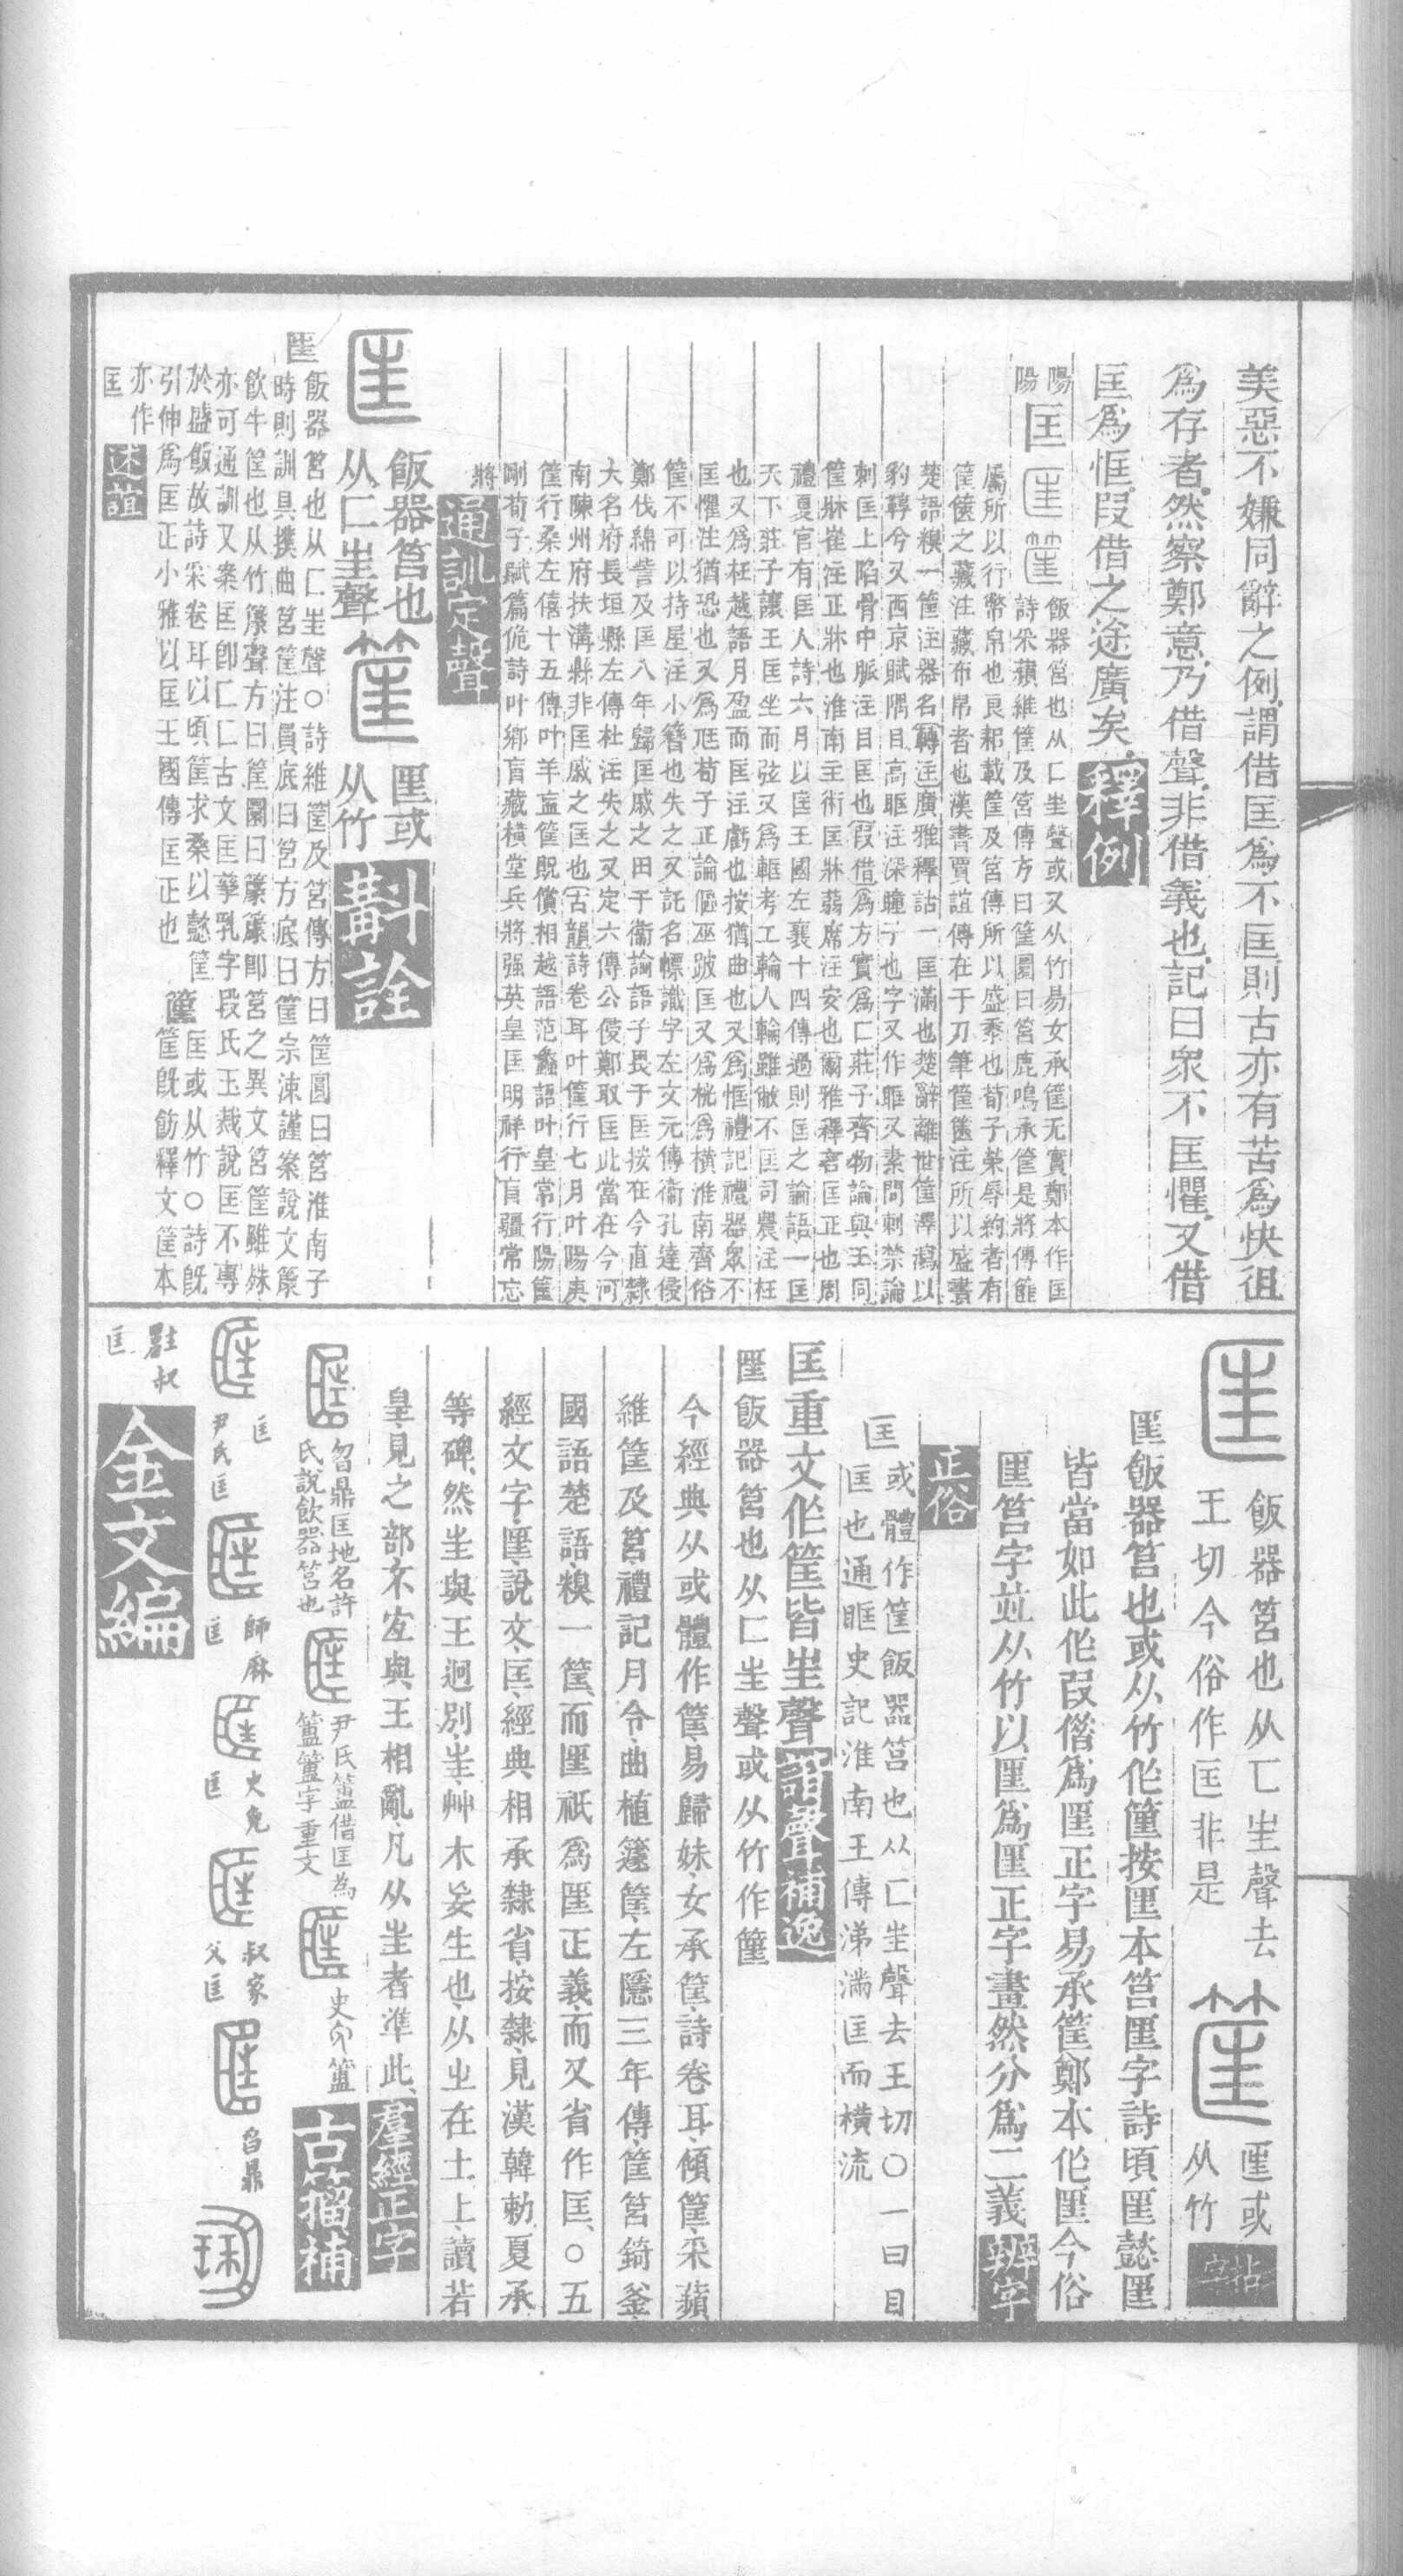 美惡不嫌同辭之例謂借匡爲不匡則古亦有苦爲快徂
爲存者然察鄭意乃借聲非借義也記曰衆不匡懼又借
匡爲恇叚借之途廣矣釋例
陽陽匡
飯器筥也从匚㞷聲或又从竹易女承筐无實鄭本作匡
詩采蘋維筐及筥傳方曰筐圓曰筥鹿鳴承筐是將傳筐
屬所以行幣帛也良耜載筐及筥傳所以盛黍也荀子榮辱約者有
筐篋之藏注藏布帛者也漢書賈誼傳在于刀筆筐篋注所以盛書
楚語糗一筐注器名轉注廣雅釋詁一匡滿也楚辭離世筐澤瀉以
豹鞹兮又西京賦隅目高眶注深瞳子也字又作眶又素問刺禁論
刺匡上陷骨中脈注目匡也叚借爲方實爲匚莊子齊物論與王同
筐牀崔注正牀也淮南主術匡牀蒻席注安也爾雅釋言匡正也周
禮夏官有匡人詩六月以匡王國左襄十四傳過則匡之論語一匡
天下莊子讓王匡坐而弦又爲軭考工輪人輪雖敝不匡司農注枉
也又爲枉越語月盈而匡注虧也按猶曲也又爲恇禮記禮器衆不
匡懼注猶恐也又爲尪荀子正論傴巫跛匡又爲桄爲橫淮南齊俗
筐不可以持屋注小簪也失之又託名幖識字左文元傳衞孔達侵
鄭伐緜訾及匡八年歸匡戚之田于衞論語子畏于匡按在今直隸
大名府長垣縣左傳杜注失之又定六傳公侵鄭取匡此當在今河
南陳州府扶溝縣非匡戚之匡也古韻詩卷耳叶筐行七月叶陽庚
筐行桑左僖十五傳叶羊衁筐貺償相越語范蠡語叶皇常行陽筐
剛荀子賦篇佹詩叶鄉盲藏橫堂兵將强英皇匡明祥行盲疆常忘
將通訓定聲
飯器筥也
从匚㞷聲
匩或
从竹
斠詮
匩飯器筥也从匚㞷聲○詩維筐及筥傳方曰筐圓曰筥淮南子
時則訓具撲曲筥筐注員底曰筥方底曰筐宗涑謹案說文䉛
飲牛筐也从竹豦聲方曰筐圜曰䉛䉛卽筥之異文筥筐雖殊
亦可通訓又案匡卽匚匚古文匡孳乳字段氏玉裁說匡不專
於盛飯故詩采卷耳以頃筐求桑以懿筐
引伸爲匡正小雅以匡王國傳匡正也
匡或从竹○詩旣
筐旣飭釋文筐本
亦作
匡述誼
飯器筥也从匚㞷聲去
王切今俗作匡非是
匩或
从竹
匩飯器筥也或从竹作篚按匩本筥匩字詩頃匩懿匩
皆當如此作叚偺爲匩正字易承筐鄭本作匩今俗
匩筥字竝从竹以匩爲匩正字畫然分爲二義辨字
正俗
匡
或體作筐飯器筥也从匚㞷聲去王切○一曰目
匡也通眶史記淮南王傳涕滿匡而橫流
匡重文作筐皆㞷聲諧聲補逸
匩飯器筥也从匚㞷聲或从竹作篚
今經典从或體作筐易歸妹女承筐詩卷耳傾筐采蘋
維筐及筥禮記月令曲植籧筐左隱三年傳筐筥錡釜
國語楚語糗一筐而匩祇爲匩正義而又省作匡○五
經文字匩說文匡經典相承隸省按隸見漢韓勑夏承
等碑然㞷與王迥別㞷艸木妄生也从㞢在土上讀若
皇見之部不宐與王相亂凡从㞷者準此羣經正字
曶鼎匡地名許
氏說飲器筥也
尹氏簠借匡爲
簠簠字重文
史卯簠
古籀補
匡
尹氏匡
師麻
匡
史免
匡
叔家
父匡
曶鼎
叔
匡
金文編